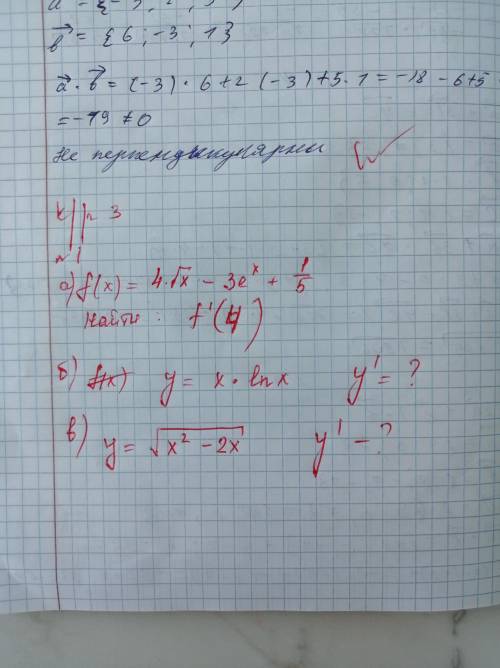 b⃗ = {6 ; -3 ; 1}
a⃗ · b⃗ = (-3) · 6 + 2 (-3) + 5 · 1 = -18 - 6 + 5
= -19 ≠ 0
не перпендикулярны
3
1
а) f(x) = 4·√x - 3e^x + 1/5
Найти : f'(4)
б) f(x) y = x · ln x y' = ?
в) y = √(x² - 2x) y' - ?